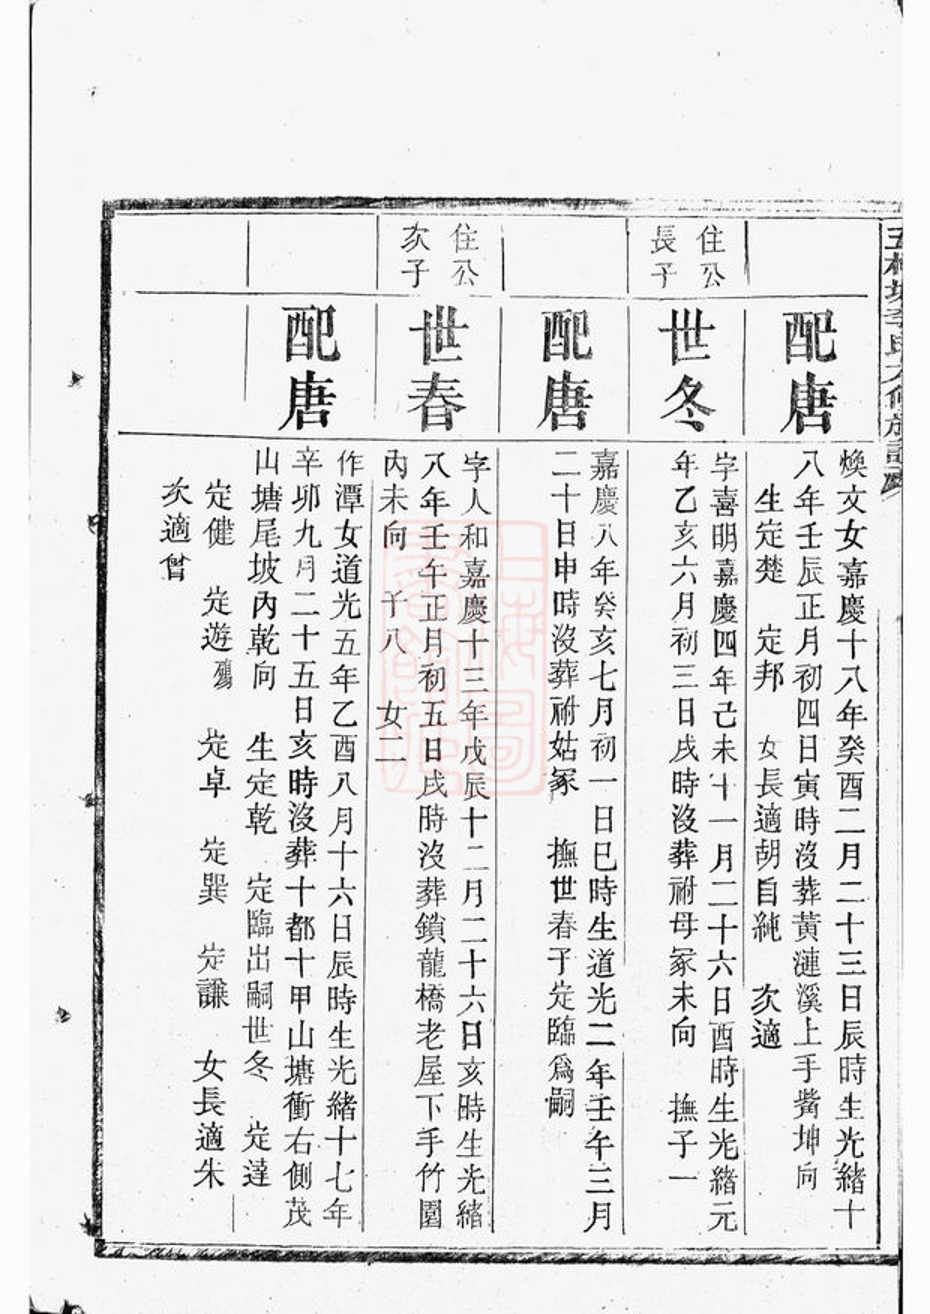 配唐
煥文女嘉慶十八年癸酉二月二十三日辰時生光緒十
八年壬辰正月初四日寅時沒葬黃漣溪上手嘴坤向
生定楚 定邦 女長適胡自純 次適
住公
長子
世冬
字喜明嘉慶四年己未十一月二十六日酉時生光緒元
年乙亥六月初三日戌時沒葬祔母冢未向 撫子一
配唐
嘉慶八年癸亥七月初一日巳時生道光二年壬午三月
二十日申時沒葬祔姑冢 撫世春子定臨爲嗣
住公
次子
世春
字人和嘉慶十三年戊辰十二月二十六日亥時生光緒
八年壬午正月初五日戌時沒葬鎖龍橋老屋下手竹園
內未向 子八 女二
配唐
作潭女道光五年乙酉八月十六日辰時生光緒十七年
辛卯九月二十五日亥時沒葬十都十甲山塘衝右側茂
山塘尾坡內乾向 生定乾 定臨出嗣世冬 定達
定健 定遊殤 定卓 定巽 定謙 女長適朱
次適曾